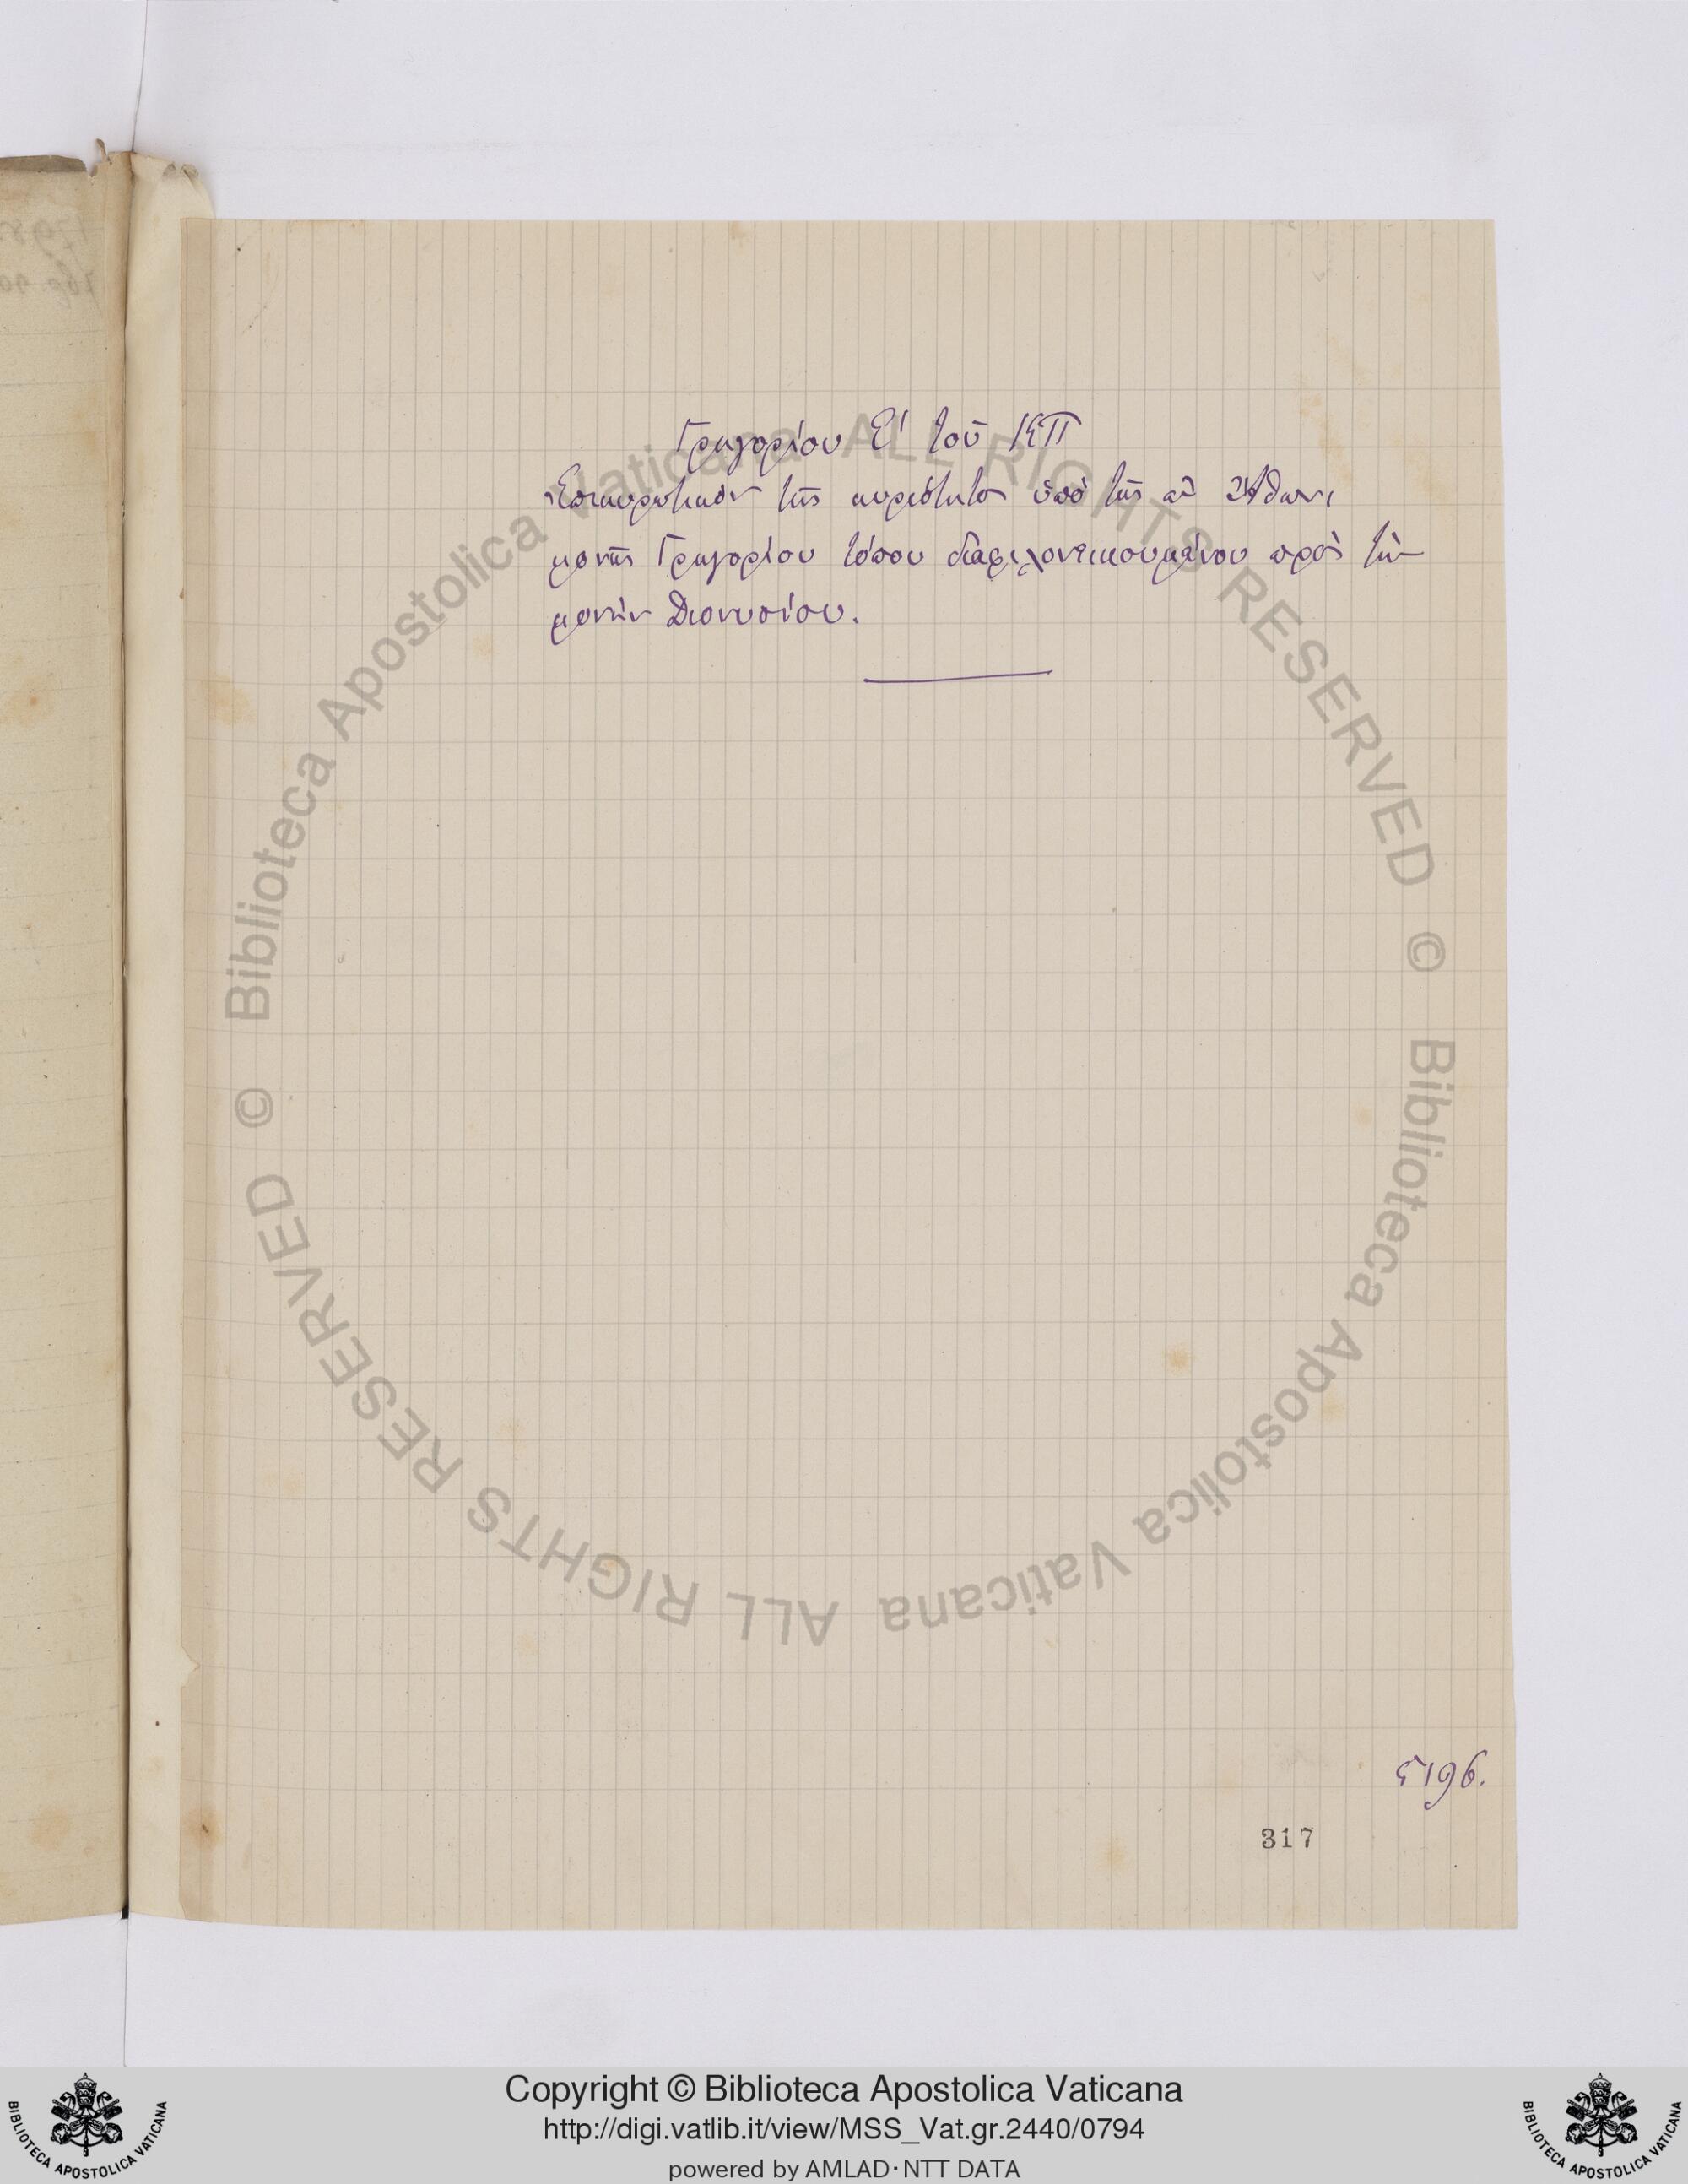 Γρηγορίου Ε' τοῦ ΚΠ
Ἐπικυρωτικὸν τῆς κυριότητος ὑπὸ τῆς ἐν Ἄθωνι
μονῆς Γρηγορίου τόπου διαφιλονεικουμένου πρὸς τὴν
μονὴν Διονυσίου.
5196.
317
Biblioteca Apostolica Vaticana ALL RIGHTS RESERVED ©
Biblioteca Apostolica Vaticana ALL RIGHTS RESERVED ©
Copyright © Biblioteca Apostolica Vaticana
http://digi.vatlib.it/view/MSS_Vat.gr.2440/0794
powered by AMLAD·NTT DATA
BIBLIOTECA APOSTOLICA VATICANA
BIBLIOTECA APOSTOLICA VATICANA